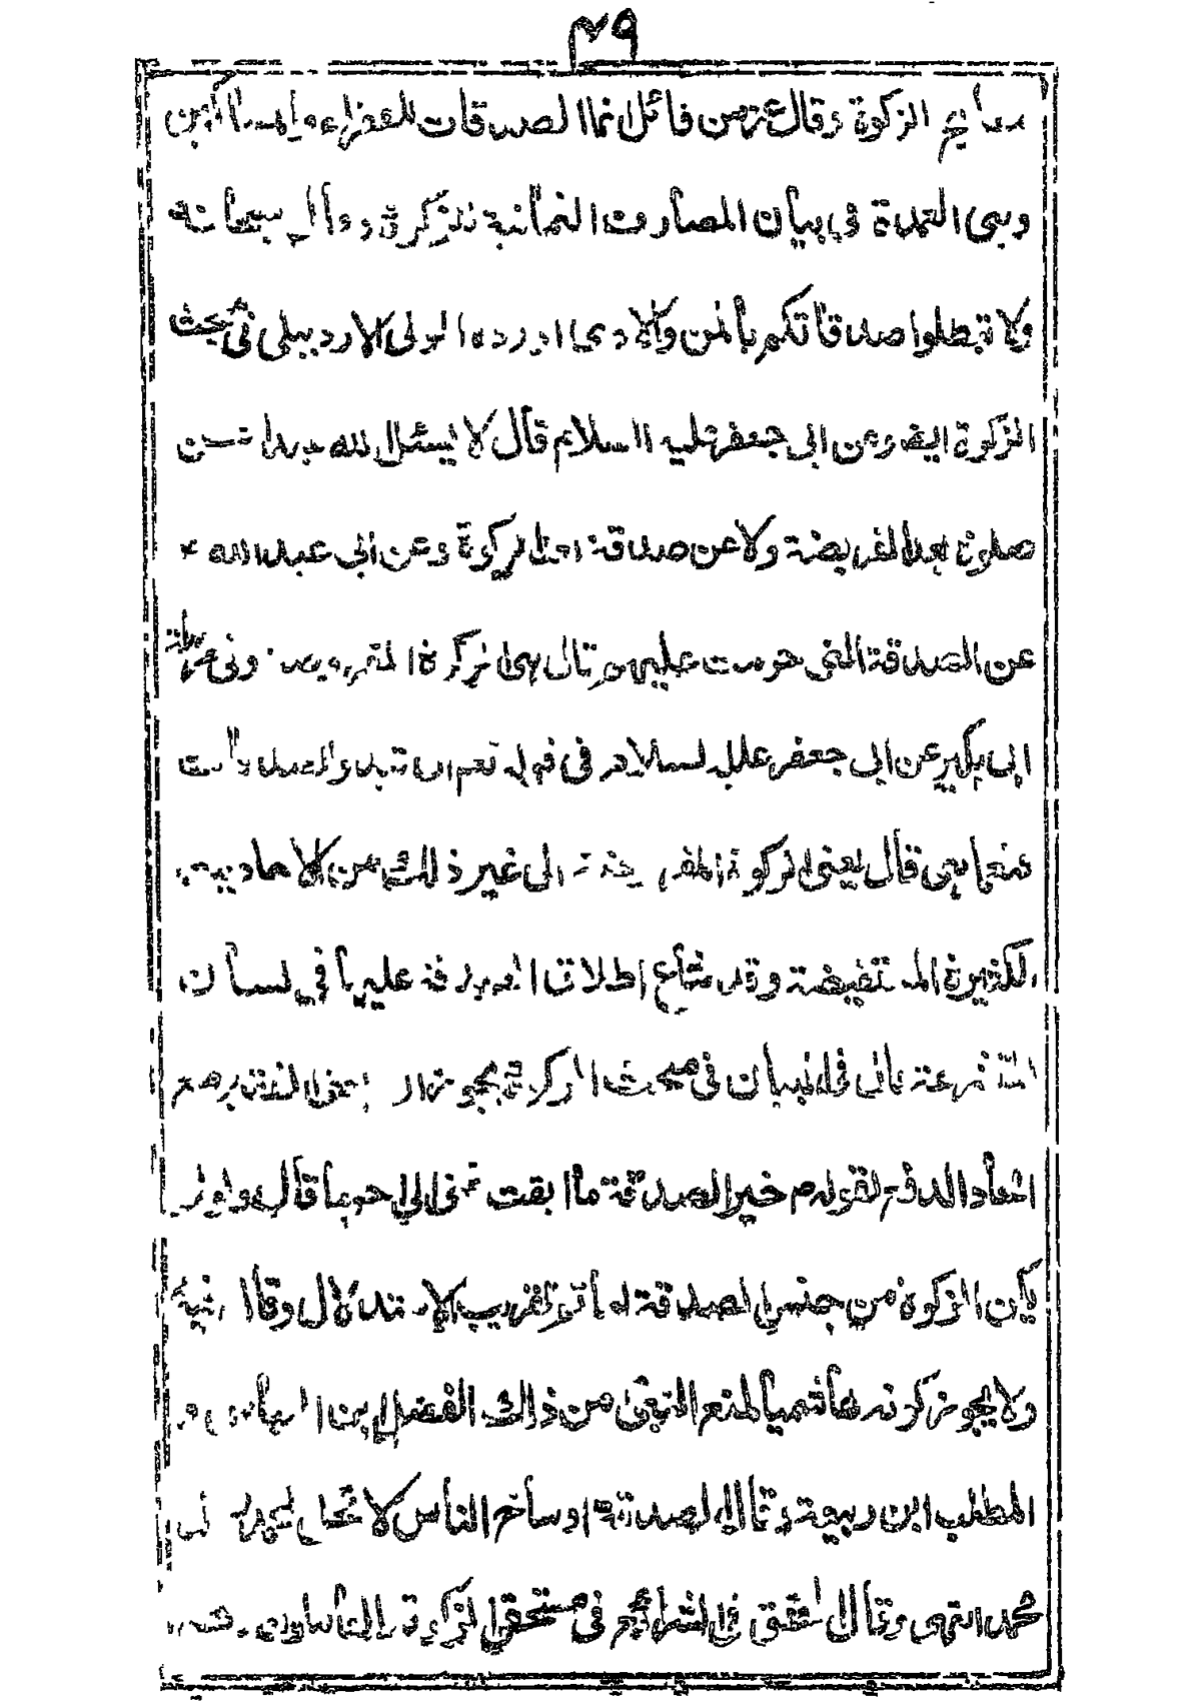 ٤٩
الزكوة وقال عز من قائل انما الصدقات للفقراء والمساكين
وهى العمدة في بيان المصارف الثمانية للزكوة وقال سبحانه
ولا تبطلوا صدقاتكم بالمن والاذى اورده المولى الاردبيلى في بحث
الزكوة ايضا وعن ابى جعفر عليه السلام قال لا يسئل الله عبدا عن
صلوة بعد الفريضة ولا عن صدقة بعد الزكوة وعن ابى عبد الله ع
عن الصدقة التى حرمت عليهم قال هى الزكوة المفروضة وفى مرسلة
ابى بكير عن ابى جعفر عليه السلام في قوله تعم ان تبدوا الصدقات
فنعما هى قال يعنى الزكوة المفروضة الى غير ذلك من الاحاديث
الكثيرة المستفيضة وقد شاع اطلاق الصدقة عليها في لسان
المتشرعة قال في البيان في مبحث الزكوة يجوز
لقوله م خير الصدقة ما ابقت غنى الى ان قال ولو
بان الزكوة من جنس الصدقة لما تم تقريب الاستدلال وقال
ولا يجوز كونه هاشميا لمنع النبى من ذلك الفضل بن العباس و
المطلب ابن ربيعة وقال الصدقة اوساخ الناس لا تحل لمحمد وآل
محمد انتهى وقال المحقق في الشرائع في مستحقى الزكوة